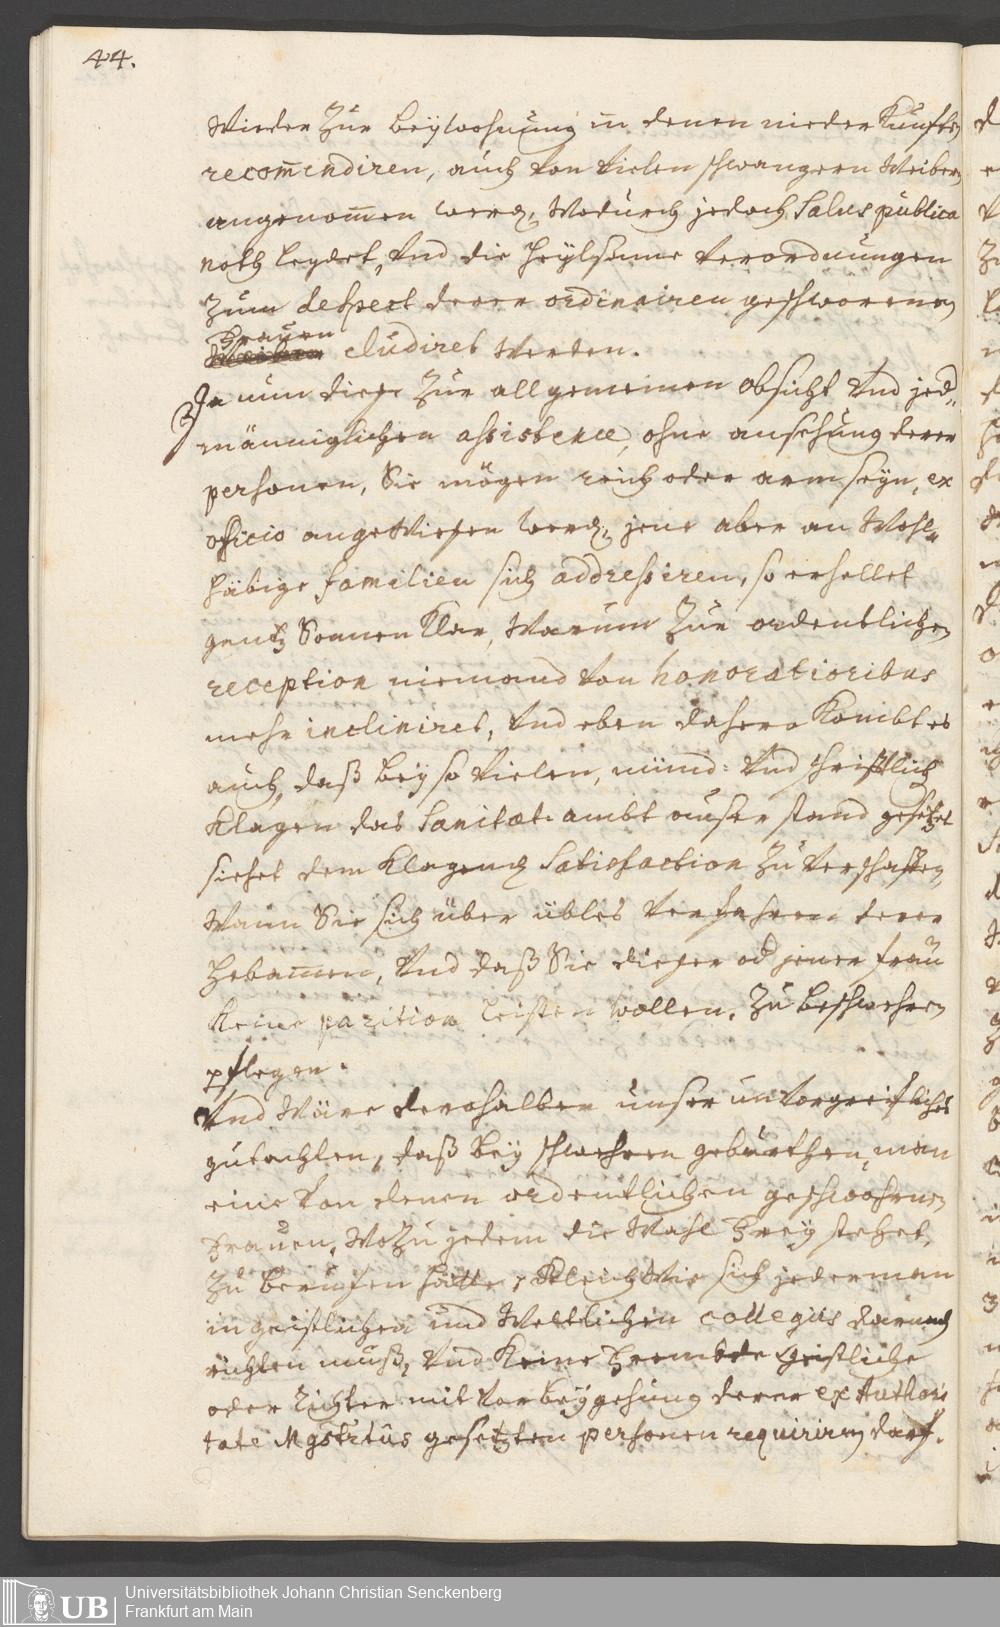 44.
Wieder Zur beÿwohnung in denen nieder Künfften
recom̄endiren, auch von vielen schwangern Weibern
angenom̄en werd, Wodurch jedoch Salus publica
noth leydet, Vnd die heÿlsame Verordnungen
Zum despect derer ordinairen geschworenen
Frauen
eludiret Werden.
Ja nun diese Zur allgemeinen obsicht Vnd jed-
männiglichen assistence, ohne ansehung derer
personen, Sie mögen reich oder arm seÿn, ex
officio angewiesen werd, jene aber an Wohl-
häbige familien sich addressiren, so erhellet
gantz Sonnen Klar, Warum Zur ordentlichen
reception niemand von honoratioribus
mehr incliniret, Vnd eben dahero Kombt es
auch, daß beÿ so vielen, münd: Vnd schrifftlich
Klagen das Sanitæt: ambt auser stand gesetzet
siehet dem Klagend Satisfaction Zu Verschaffen,
Wann Sie sich über übles Verfahren derer
Hebam̄en, Vnd daß Sie dieser od jener frau
Keine parition leisten wollen, Zu beschwehren
pflegen.
Vnd Wäre derohalben unser unvorgreifliches
gutachten, daß beÿ schwehren geburthen, man
eine von denen ordentlichen geschwohrnen
Frauen, Wozu jedem die Wahl Freÿ stehet,
Zu beruffen hätte, Gleich Wie sich jederman
in geistlichen und Weltlichen collegiis darnach
richten muß, Vnd Keine Frembde Geistliche
oder Richter mit Vorbeÿgehung derer ex Authori
tate Mgstrtûs gesetzten personen requiriren darf.
UB
Universitätsbibliothek Johann Christian Senckenberg
Frankfurt am Main